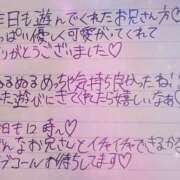 昨日も遊んでくれたお兄さん方♡
っぱい優しく可愛がってくれて
りがとうございました♡
ぬるぬるめっちゃ気持ち良かったね!
た遊びにきてくれたら嬉しいなぁ♡
日も12時〜♡
んなお兄さんとイチャイチャできるかな
ブコールお待ちしてます♡